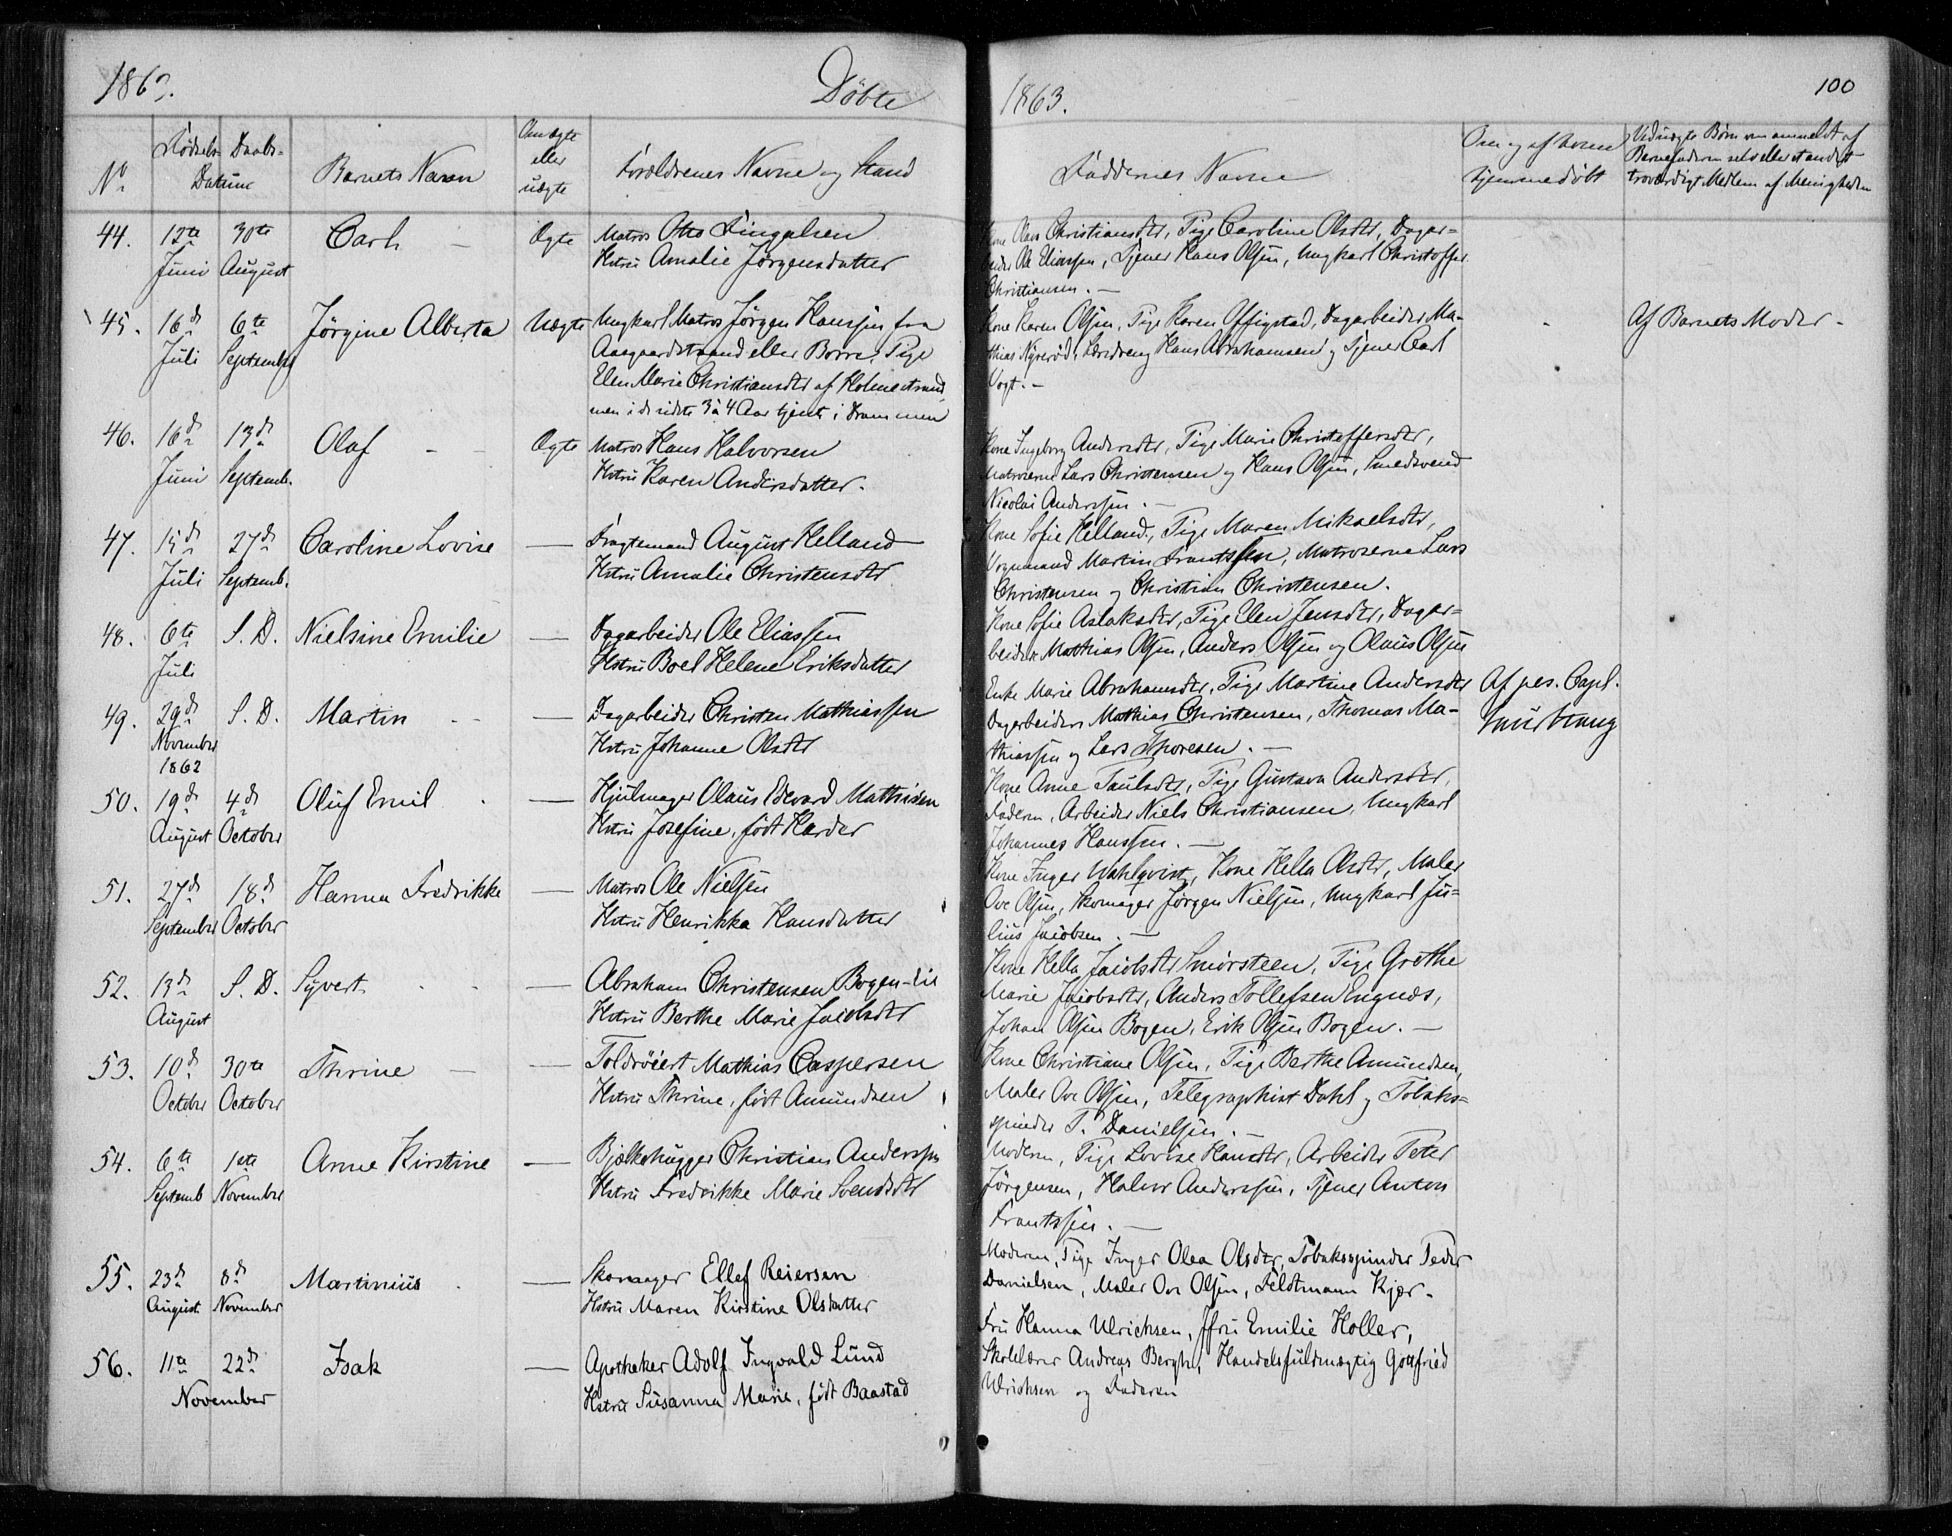 1863.
Döbte
No
Födsels-
Daabs-
Datum
Barnets Navn
Om ægte
eller
uægte
Forældrenes Navne og Stand
44.
12te
Juni
30te
August
Carl
Ægte
Matros Otto Fingalsen
Hstru Amalie Jörgensdatter
45.
16de
Juli
6te
September
Jörgine Alberta
Uægte
Ungkarl Matros Jörgen Hanssen fra
Aasgaardstrand eller Borre, Pige
Elen Marie Christiansdtr af Holmestrand
men i de sidste 3 à 4 Aar tjent i Drammen
46.
16de
Juni
13de
Septemb.
Olaf
Ægte
Matros Hans Halvorsen
Hstru Karen Andersdatter.
47.
15de
Juli
27de
Septemb.
Caroline Lovise
Fragtemand August Helland
Hstru Amalie Christensdtr
48.
6te
Juli
S. D.
Nielsine Emilie
Dagarbeider Ole Eliassen
Hstru Boel Helene Eriksdatter
49.
29de
November
1862
S. D.
Martin
Dagarbeider Christen Mathiassen
Hstru Johanne Olsdtr
50.
19de
August
4de
October
Oluf Emil
Hjulmager Olaus Edvard Mathisen
Hstru Josefine, født Harder
51.
27de
September
18de
October
Hanna Fredrikke
Matros Ole Nielsen
Hstru Henrikka Hansdatter
52.
13de
August
S. D.
Syvert
Abraham Christensen Bogen-
Hstru Berthe Marie Jacobsdtr
53.
10de
October
30te
October
Thrine
Toldröiert Mathias Caspersen
Hstru Thrine, født Amundsen
54.
6te
Septemb
1ste
November
Anne Kirstine
Bjelkehugger Christian Anderssen
Hstru Fredrikke Marie Svendsdtr
55.
23de
August
8de
November
Martinius
Skomager Ellef Reiersen
Hstru Maren Kirstine Olsdatter
56.
11te
22de
November
Isak
Apotheker Adolf Ingvald Lund
Hstru Susanna Marie, født Baastad
1863.
100
Faddernes Navne
Om og af hvem
hjemmedöbt
Ved uægte Børn om anmeldt af
Barnefaderen selv eller et andet
troværdigt Medlem af Menigheden
Kone Olava Christiansdtr, Pige Caroline Olsdtr, Dagar-
beider Ole Eliassen, Tjener Hans Olsen, Ungkarl Christoffer
Christiansen. —
Kone Karen Olsen, Pige Karen Offigstad, Dagarbeider Ma-
thias Nyeröd, Læredreng Hans Abrahamsen og Tjener Carl
Vogt. —
Af Barnets Moder -
Kone Ingeborg Andersdtr, Pige Marie Christoffersdtr,
Matroserne Lars Christensen og Hans Olsen, Smedsvend
Nicolai Anderssen. —
Kone Sofie Helland, Pige Maren Mikaelsdtr,
Vognmand Martin Frantssen, Matroserne Lars
Christensen og Christian Christensen.
Kone Sofie Aslaksdtr, Pige Elen Jensdtr, Dagar-
beider Mathias Olsen, Anders Olsen og Olaus Olsen
Enke Marie Abrahamsdtr, Pige Martine Andersdtr
Dagarbeiders Mathias Christensen, Thomas Ma-
thiassen og Lars Thoresen. —
Af pes. Capl.
Kone Anne Paulsdtr, Pige Gustava Andersdtr,
Faderen, Arbeider Niels Christiansen, Ungkarl
Johannes Hanssen. —
Kone Inger Wahlqvist, Kone Hella Olsdtr, Maler
Ove Olsen, Skomager Jörgen Nielsen, Ungkarl Ju-
lius Jacobsen. —
Kone Hella Jacobsdtr Smörsteen, Pige Grethe
Marie Jacobsdtr, Anders Tollefsen Engnæs,
Johan Olsen Bogen, Erik Olsen Bogen. —
Kone Christiane Olsen, Pige Berthe Amundsen,
Maler Ove Olsen, Telegraphist Dahl og Tobaks-
spinder P. Danielsen. —
Moderen, Pige Lovise Hansdtr, Arbeider Peter
Jörgensen, Halvor Anderssen, Tjener Anton
Frantssen. —
Moderen, Pige Inger Olea Olsdtr, Tobaksspinder Peder
Danielsen, Maler Ove Olsen, Feldtmann Kjær.
Fru Hanna Ulrichsen, Jfru Emilie Holler,
Skolelærer Andreas Bergh, Handelsfuldmægtig Gottfried
Ulrichsen og Faderen